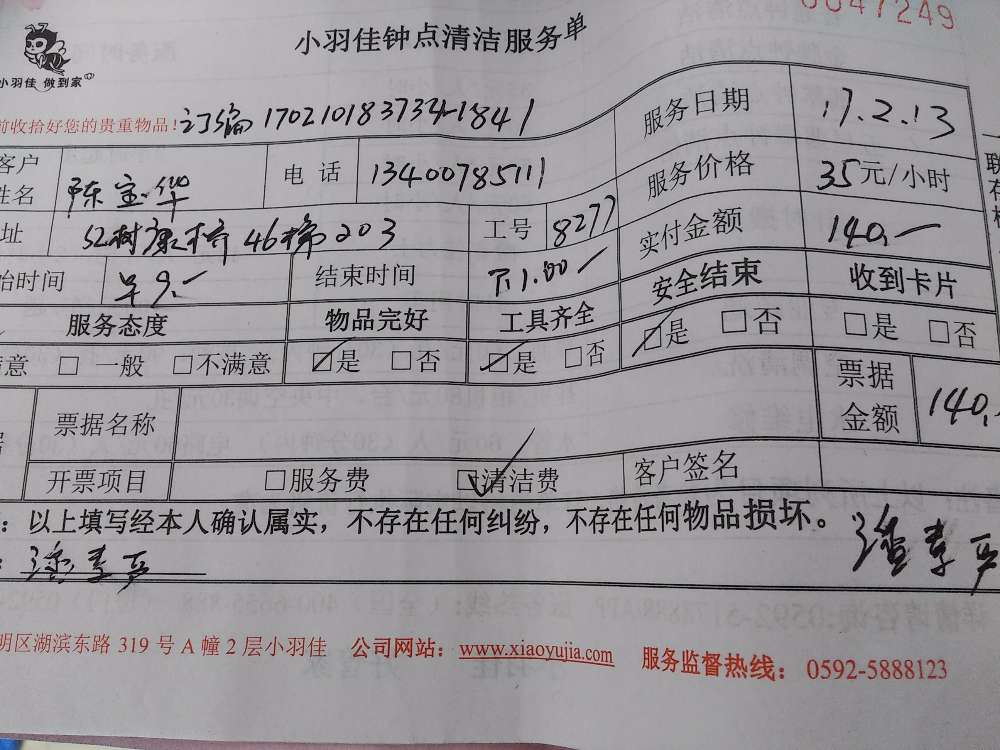 0047249
小羽佳钟点清洁服务单
小羽佳 做到家
前收拾好您的贵重物品! 订编 170210183734-1841
服务日期 17.2.13
客户姓名 陈宝华 电 话 13400785111 服务价格 35元/小时
址 红树康桥46梯203 工号 8277 实付金额 140.—
始时间 早9.— 结束时间 下1.00— 安全结束 收到卡片
服务态度 物品完好 工具齐全 ☑是 □否 □是 □否
满意 □ 一般 □不满意 ☑是 □否 ☑是 □否 票据金额 140.
票据名称
开票项目 □服务费 ☑清洁费 客户签名
: 以上填写经本人确认属实，不存在任何纠纷，不存在任何物品损坏。
明区湖滨东路 319 号 A 幢 2 层小羽佳 公司网站: www.xiaoyujia.com 服务监督热线: 0592-5888123